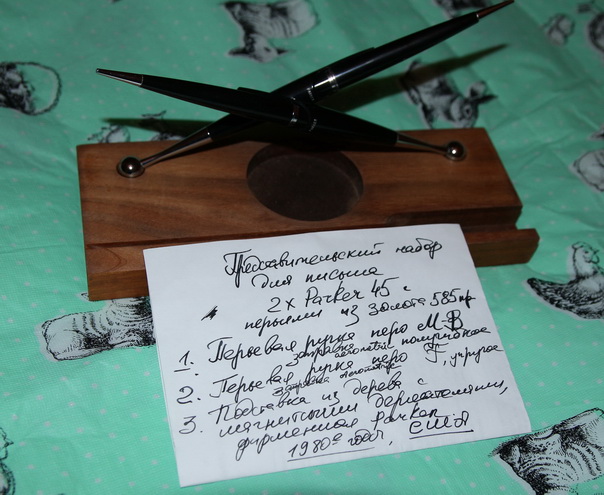 Представительский набор
для письма
2 х Parker 45 с
перьями из золота 585 пр
1. Перьевая ручка перо M-B
заправка aerometric полугибкое
2. Перьевая ручка перо F, упругое
заправка aerometric
3. Подставка из дерева с
магнитными держателями,
фирменная Parker
1980е годы, США